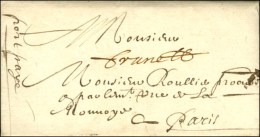 port payé
Monsieur
Brunette
Monsieur Roullié procur
au parlemt rue de La
Monnoye
a Paris